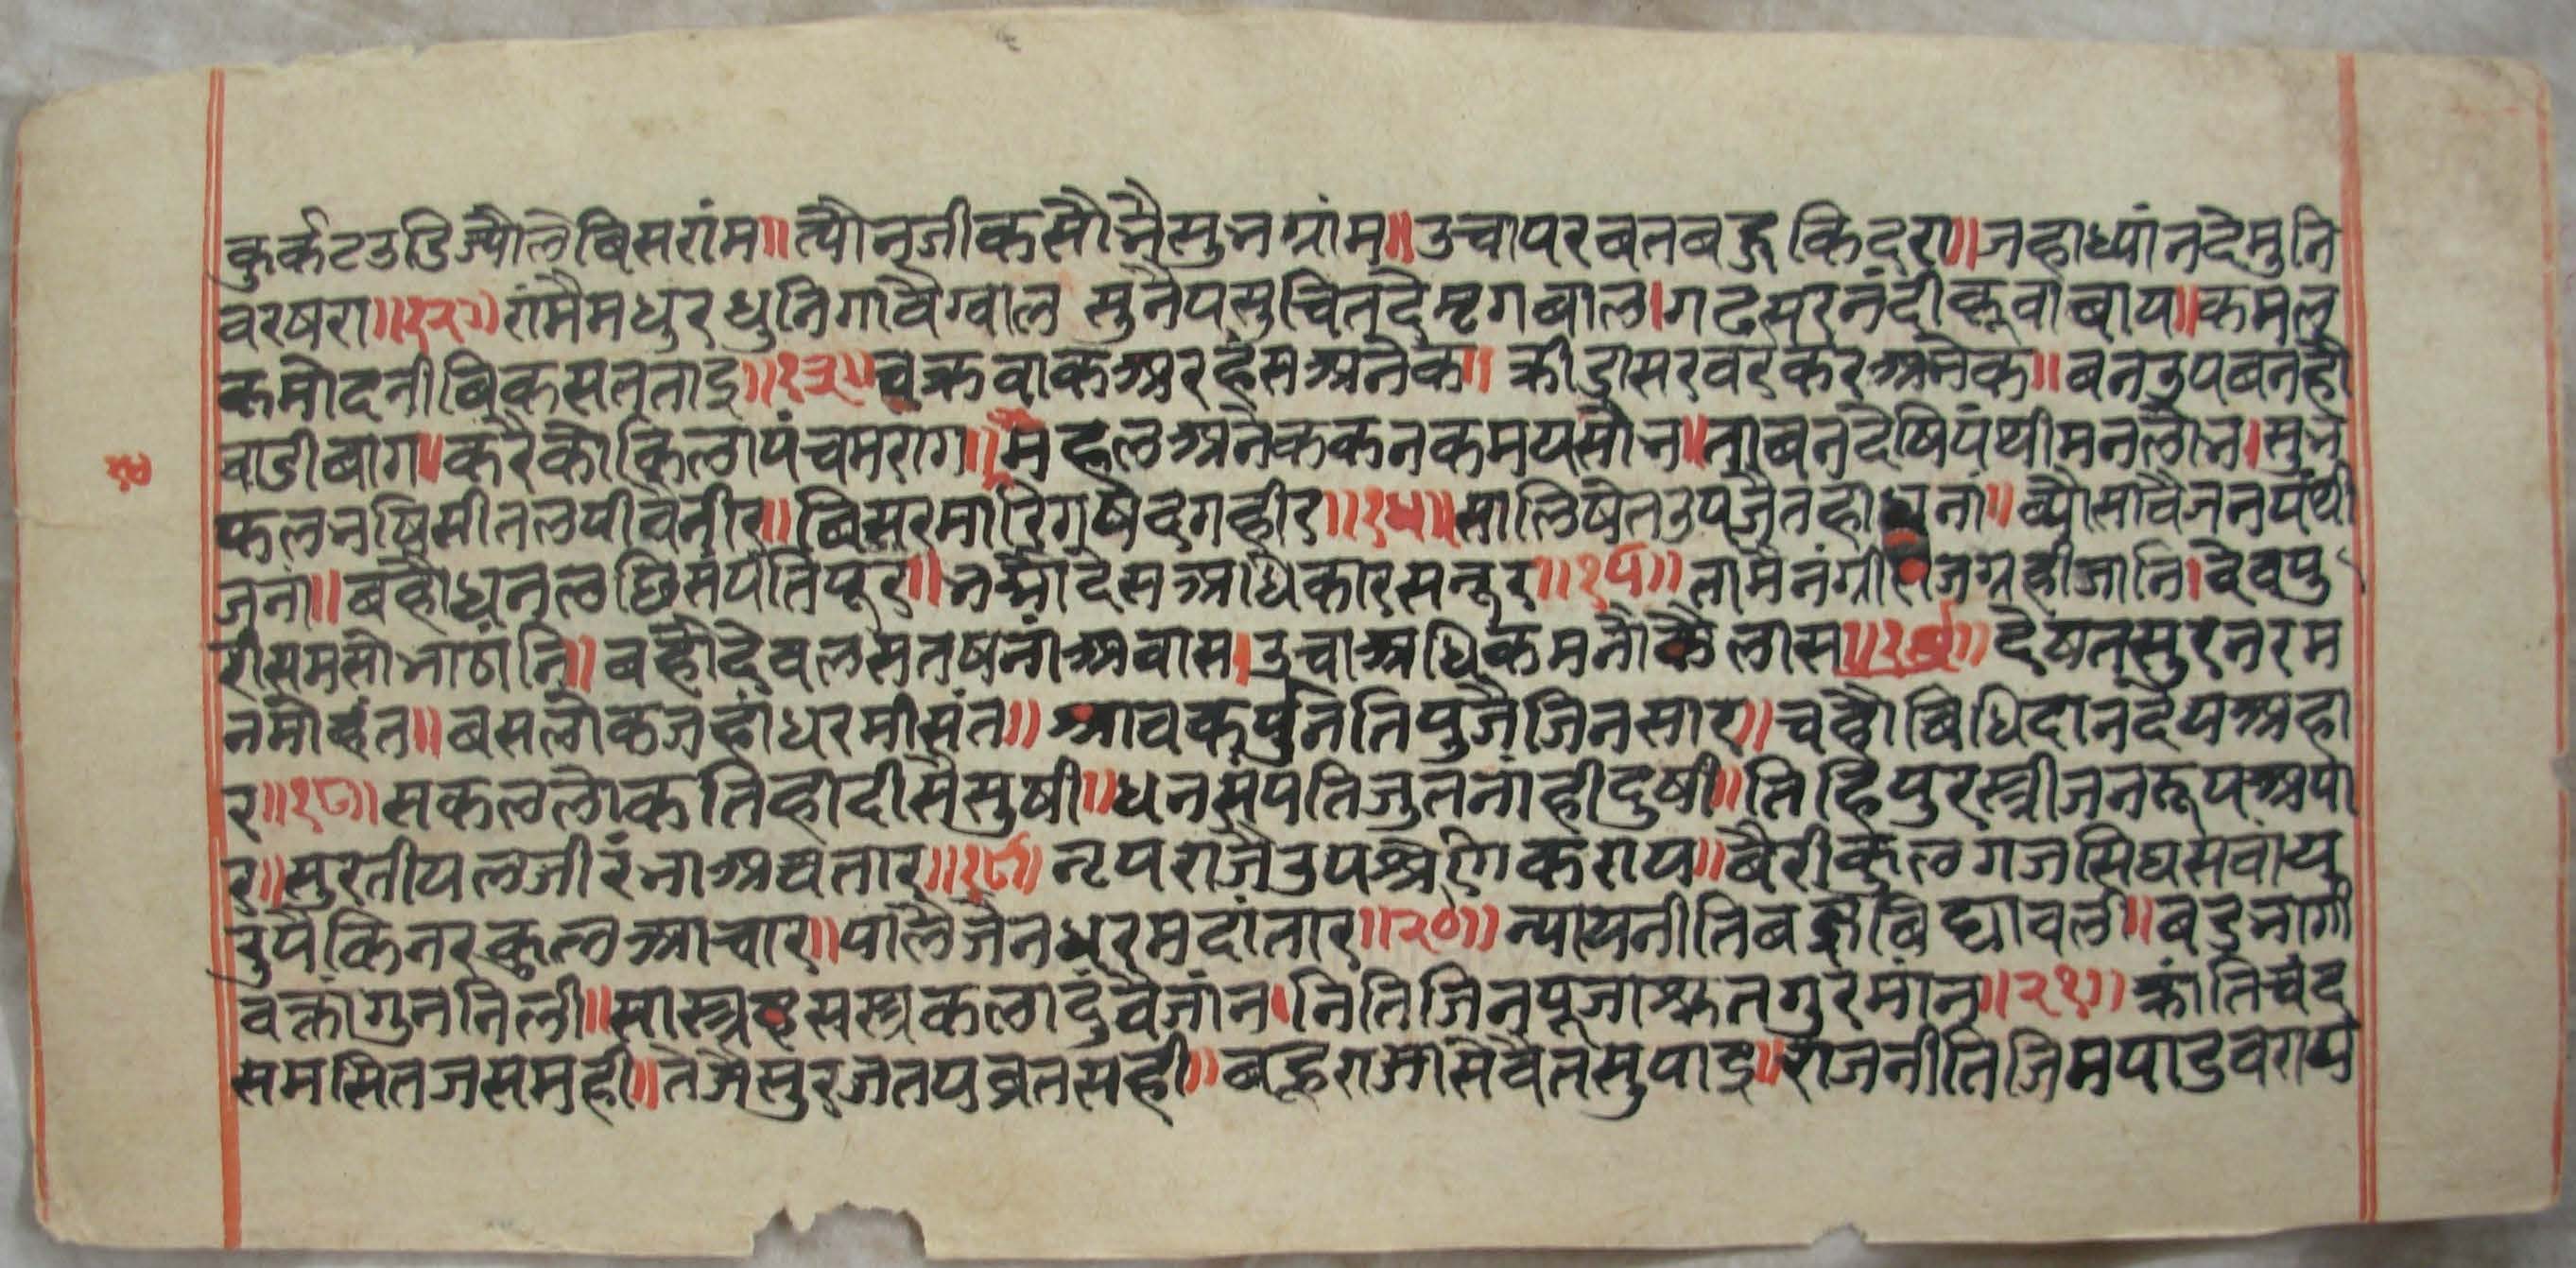 कुर्कट उडि ज्यौ ले बिसरांम॥ त्यौ नजीक सौभै सुभ ग्रांम॥ उचा परबत बहु किंदरा॥ जहा ध्यांन दे मुनि
वर षरा॥१२॥ रांमै मधुर धुनि गावै ग्वाल सुनै पसु चित दै मृग बाल। गढ सर नंदी कूवा बाय॥ कमल
कमोदनी बिकसत ताइ॥१३॥ चक्रवाक अर हंस अनेक॥ क्रीडा सरवर करै अनेक॥ बन उपबन है
वाडी बाग॥ करै कोकिला पंचम राग॥ महल अनेक कनकमय सौभ॥ ता बन देषि पंथी मन लोभ। सुभ
फल भषि सीतल पीवै नीर॥ बिसरै मारिग षेद गहीर॥१५॥ सालि षेत उपजै तहा घना॥ ज्यौ सोवै जन पंथी
जना॥ बहौ धन लछि संपति पूर॥ भर्‍मा देस अधिकार सनूर॥१६॥ तामै नंग्री राजग्रही जांनि। देवपु
री सम सोभा ठांनि॥ बहौ देवल सतषनां अवास। उचा अधिक मनौ कैलास॥१७॥ देषत सुर नर म
न मोहंत॥ बसै लोक जहां धरमी संत॥ श्रावक पुनिति पुजै जिन सार॥ चहौ बिधि दान देय अहा
र॥१८॥ सकल लोक तिहा दीसै सुषी॥ धन संपति जुत नांही दुषी॥ तिहि पुर स्त्री जन रूप अपा
र॥ सुरतीय लजी रंभा अवतार॥१९॥ नृप राजै उपश्रेणिक राय॥ बैरी कुल गज सिंघ सवाय
रुपै किनर कुल आचार॥ पालै जैन धरम दांतार॥२०॥ न्याय नीति बहौ बिद्या वली॥ बड भागी
वक्तां गुन निली॥ सास्त्र सस्त्र कला दुवै जांन। निति जिन पूजा श्रुत गुर मांन॥२१॥ क्रांति चंद
सम सित जस मही॥ तेजै सुरज तप ब्रत सही॥ बहू राजा सेवै तसु पाइ॥ राजनीति जिम पाडव राय